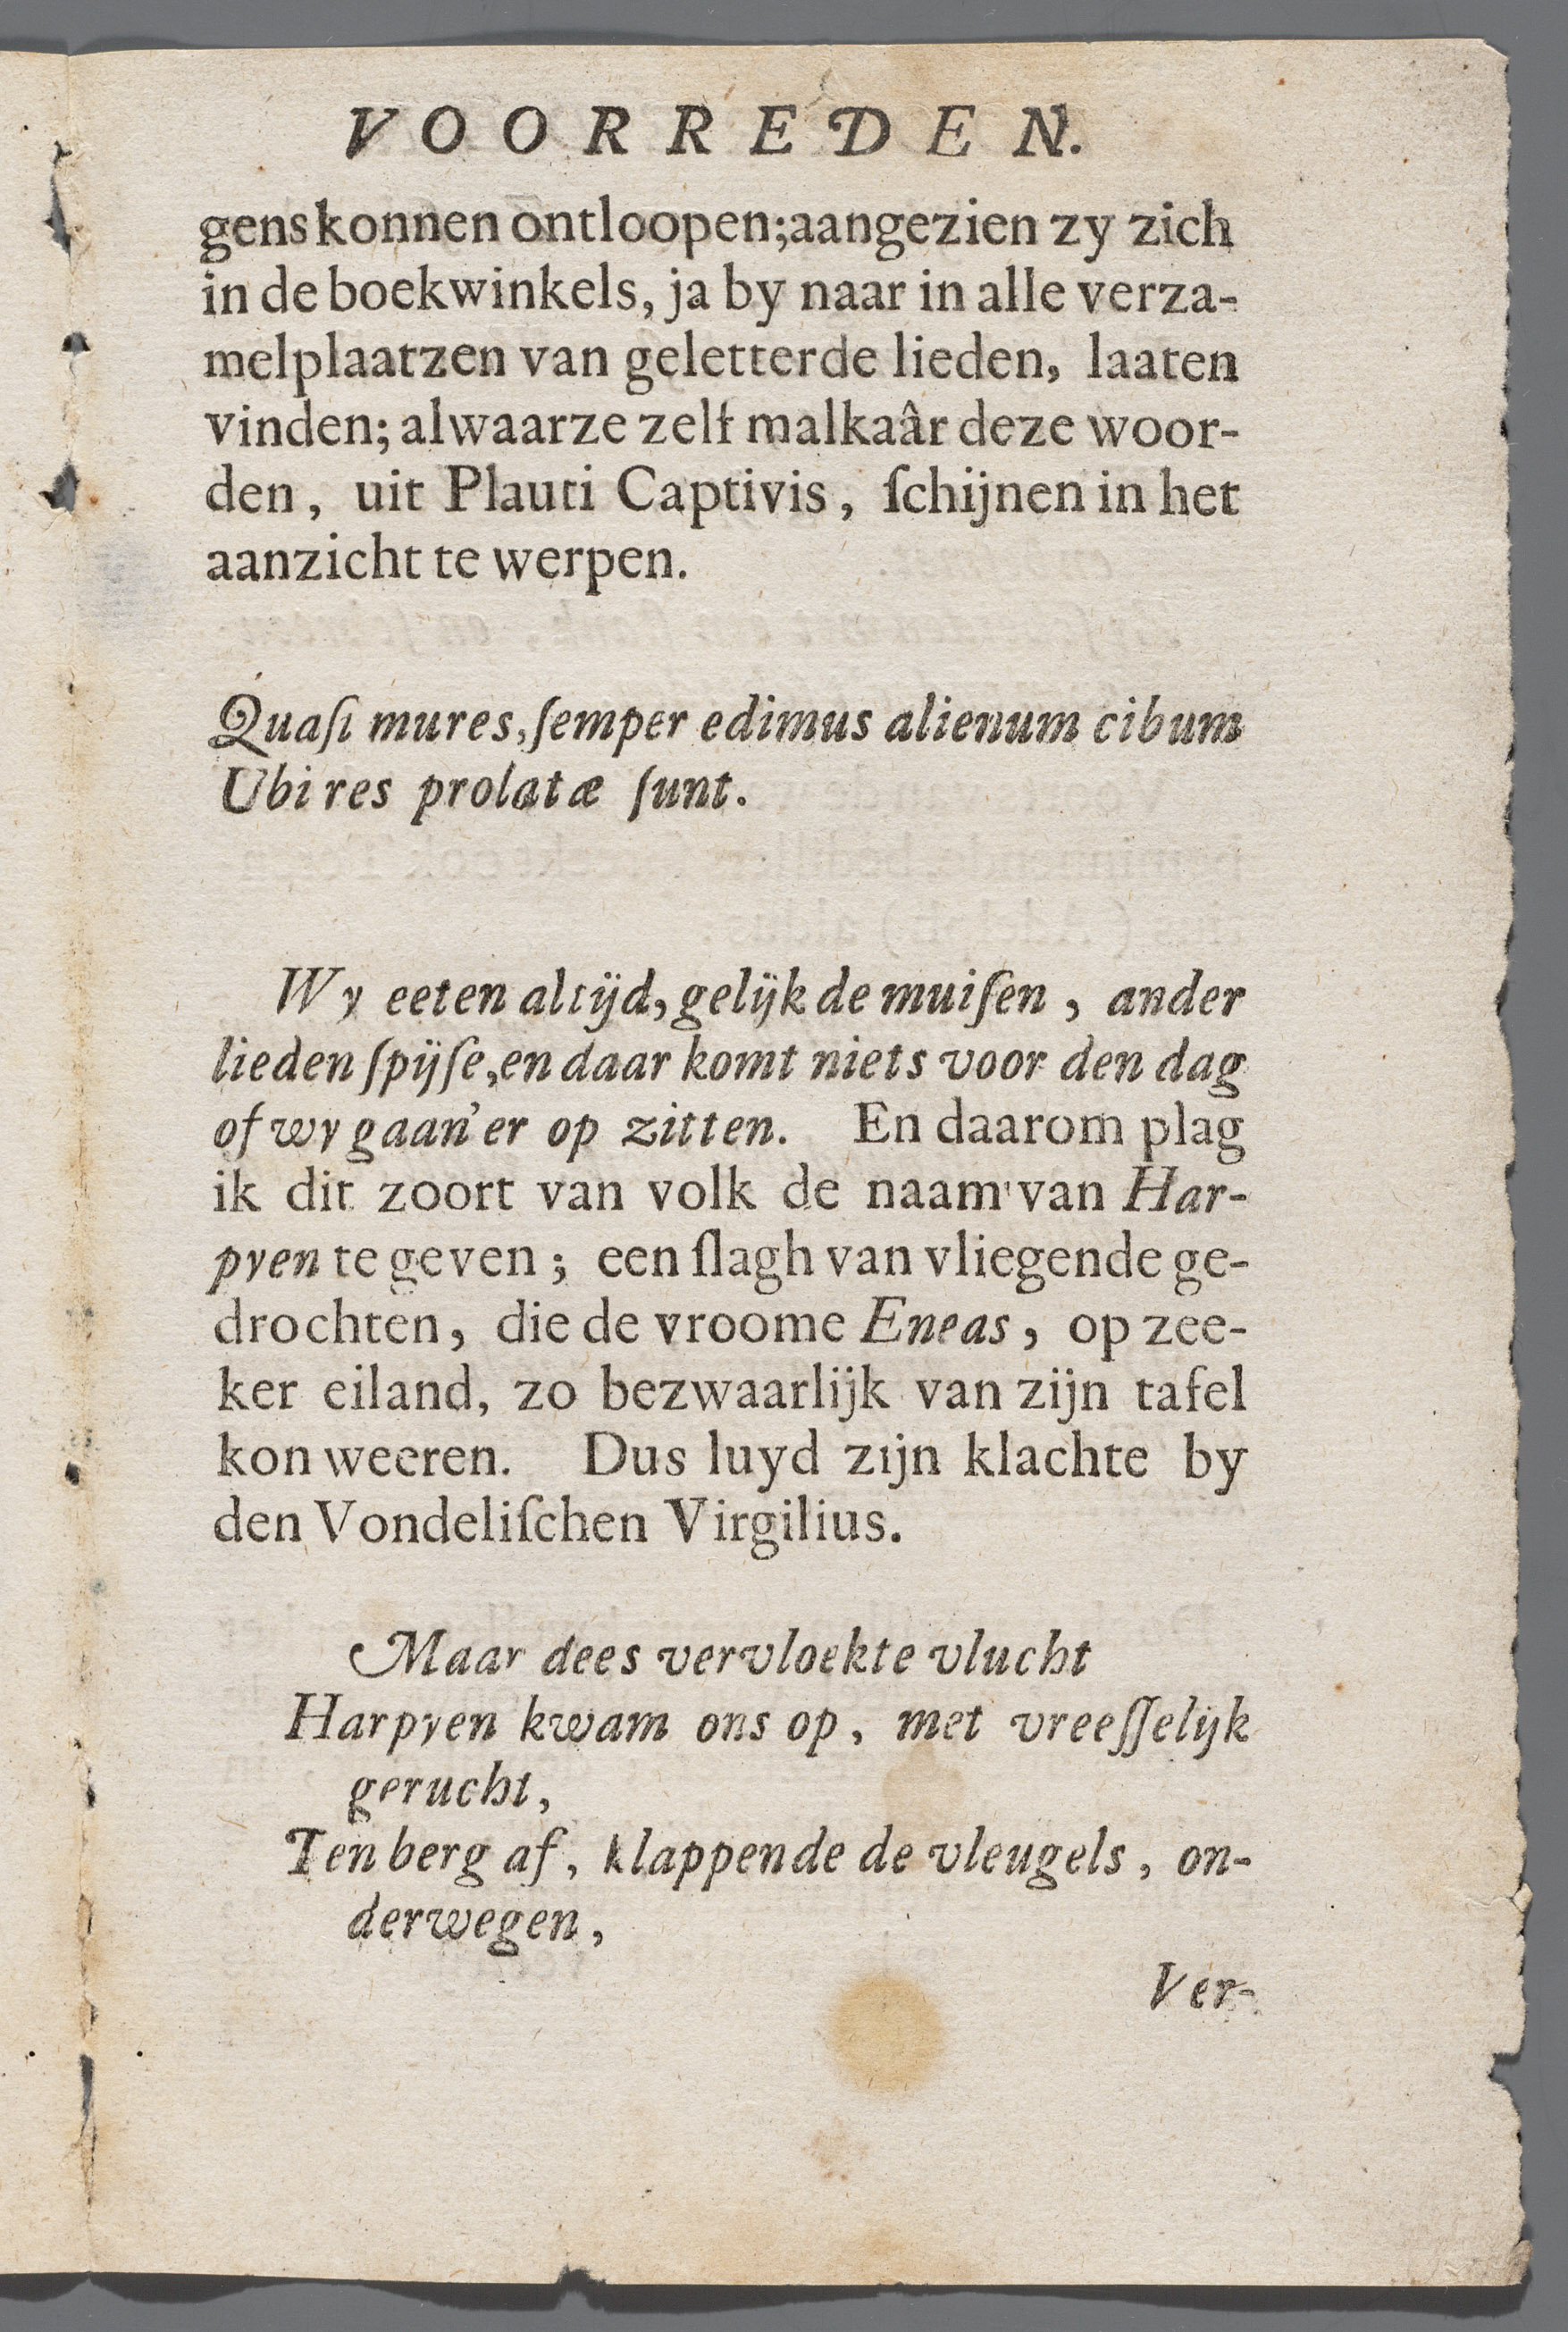 VOORREDEN.
gens konnen ontloopen; aangezien zy zich
in de boekwinkels, ja by naar in alle verza-
melplaatzen van geletterde lieden, laaten
vinden; alwaarze zelf malkaâr deze woor-
den, uit Plauti Captivis, ſchijnen in het
aanzicht te werpen.
Quaſi mures, ſemper edimus alienum cibum
Ubi res prolatæ ſunt.
Wy eeten altijd, gelijk de muiſen, ander
lieden ſpijſe, en daar komt niets voor den dag
of wy gaan'er op zitten. En daarom plag
ik dit zoort van volk de naam van Har-
pyen te geven; een ſlagh van vliegende ge-
drochten, die de vroome Eneas, op zee-
ker eiland, zo bezwaarlijk van zijn tafel
kon weeren. Dus luyd zijn klachte by
den Vondeliſchen Virgilius.
Maar dees vervloekte vlucht
Harpyen kwam ons op, met vreeſſelijk
gerucht,
Ten berg af, klappende de vleugels, on-
derwegen,
Ver-